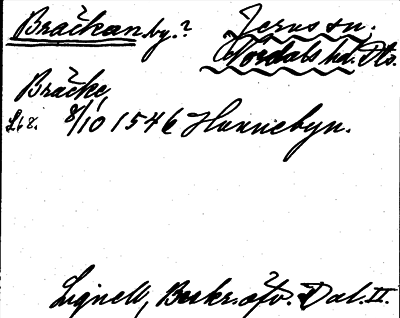 Bräckan by.? Järns sn.
Nordals hd. Dls.
Bräcke,
8/10 1546 Hannebyn.
Lignell, Beskr. öfv. Dal. II.